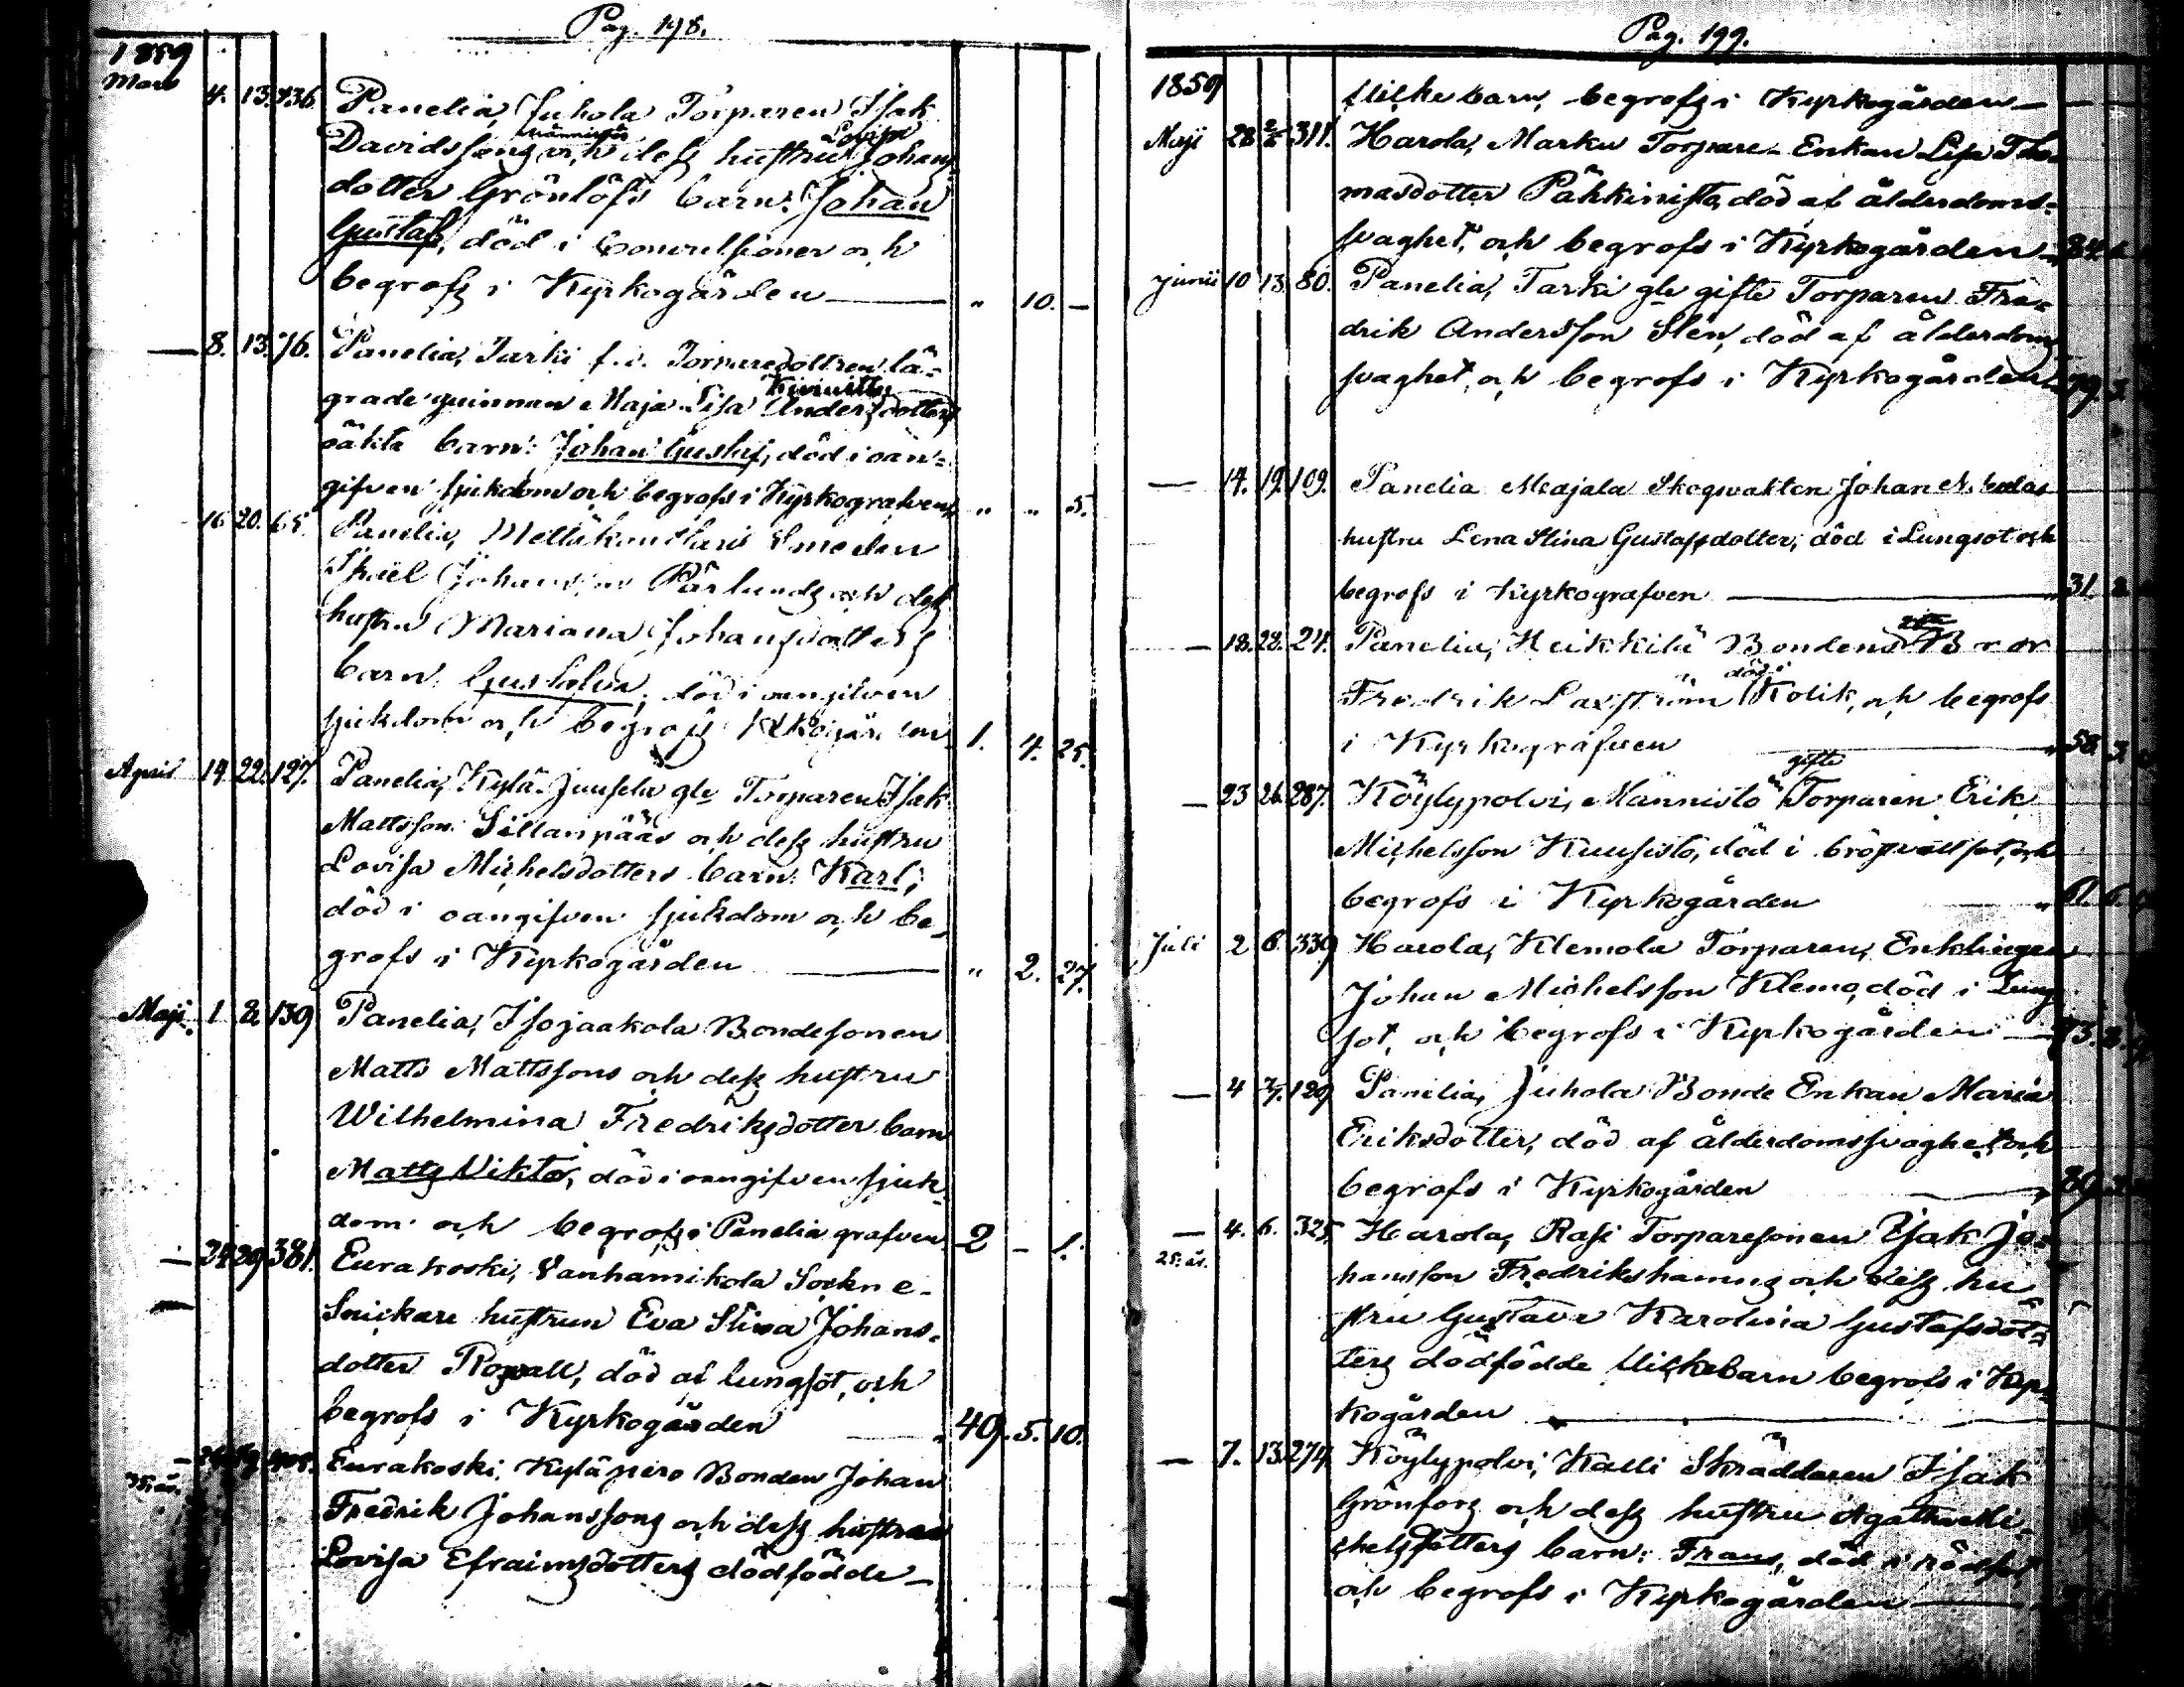 Pag. 198.
1859
Mars 4. 13. 136. Panelia, Juhola Torparen Isak
Männistös Lovisa
Davidssons och dess hustru Johans
dotter Grönlöfs barn: Johan
Gustaf, död i Convulsioner och
begrofs i Kyrkogården — " 10. —
— 8. 13. 76. Panelia, Tarki f.d. Torparedottren lä-
Kiviniitty
grade quinnan Maja Lisa Andersdotters
oäkta barn: Johan Gustaf, död i oan-
gifven sjukdom och begrofs i Kyrkografven " " 5.
16 20. 65. Panelia, Smeden
Johanssons Pärlunds och dess
hustru Mariana Johansdotters
barn: Gustafva, död i oangifven
sjukdom och begrofs i Kyrkogården 1. 4. 25.
April 14. 22. 127. Panelia, Kylä-Juusela gle Torparen Isak
Mattsson Sillanpääs och dess hustru
Lovisa Michelsdotters barn: Karl,
död i oangifven sjukdom och be-
grofs i Kyrkogården — " 2. 27.
Maji 1 8. 139 Panelia, Isojaakola Bondesonen
Matts Mattssons och dess hustru
Wilhelmina Fredriksdotter barn
Matts Viktor, död i oangifven sjuk-
dom och begrofs i Panelia grafven 2 — 1.
— 24 29 381. Eurakoski, Vanhamikola Sockne-
Snickare hustrun Eva Stina Johans-
dotter Roswall, död af lungsot, och
begrofs i Kyrkogården 49. 5. 10.
— Eurakoski, Kyläpiro Bonden Johan
35 år. Fredrik Johanssons och dess hustrus
Lovisa Efraimsdotters dödfödde —
Pag. 199.
1859 Flicke barn, begrofs i Kyrkogården —
Maji 28 311. Harola, Marku Torpare-Enkan Lisa Tho-
masdotter Pähkinistö, död af ålderdoms-
svaghet, och begrofs i Kyrkogården 84.
Junii 10 13. 80. Panelia, Tarki gle gifte Torparen Fre-
drik Andersson Slen, död af ålderdoms
svaghet, och begrofs i Kyrkogården 79 3.
— 14. 19. 109. Panelia Meajala Skogwakten Johan
hustru Lena Stina Gustafsdotter, död i Lungsot och
begrofs i Kyrkografven — 31. 2.
— 18. 22. 24. Panelia, Heikkilä Bondens Bror
död i
Fredrik Laxström Kolik, och begrofs
i Kyrkografven — 58. 3.
gifte
— 23 26. 287. Köylypolvi, Männistö Torparen Erik
Michelsson Kuusisto, död i bröstsot, och
begrofs i Kyrkogården 61. 6.
Juli 2 6. 339 Harola, Klemola Torparen, Enklingen
Johan Michelsson Klemo, död i Lung
sot, och begrofs i Kyrkogården — 73. 2.
— 4 129 Panelia, Juhola Bonde Enkan Maria
Eriksdotter, död af ålderdomssvaghet och
begrofs i Kyrkogården 89.
— 4. 6. 325. Harola, Rasi Torparesonen Isak Jo-
25. år. hansson Fredrikshamns och dess hu-
stru Gustava Karolina Gustafsdot-
ters dödfödde Flickebarn begrofs i Kyr-
kogården —
— 7. 13. 274. Köylypolvi, Kalli Skräddaren Isak
Grönfors och dess hustru Agatha Mi-
chelsdotters barn: Frans, död i rödsot
och begrofs i Kyrkogården —